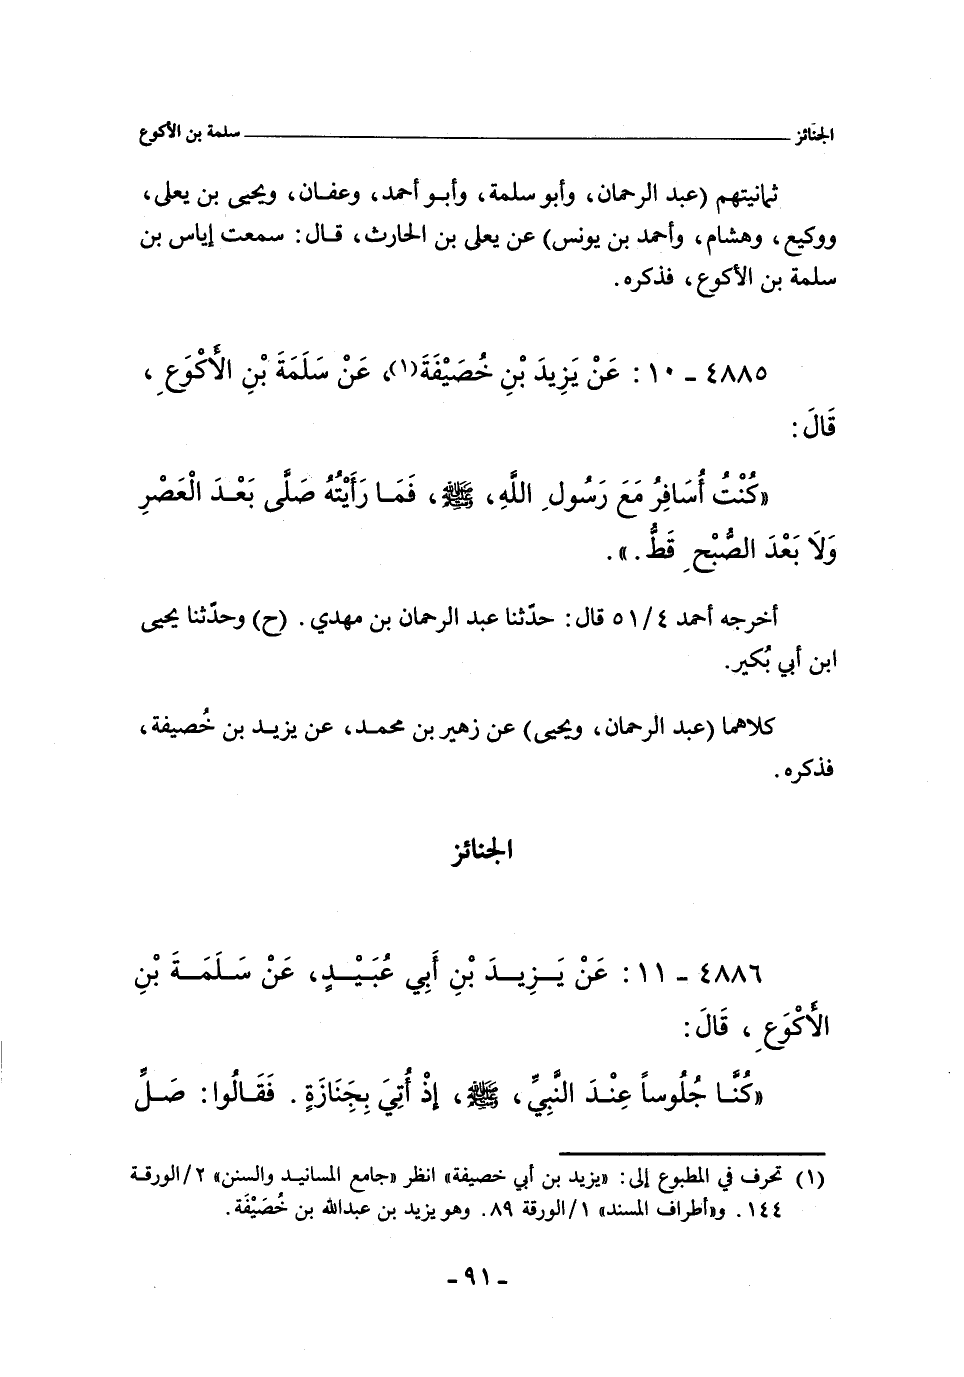 الجنائز ــــــــــــــــــــ سلمة بن الأكوع
ثمانيتهم (عبد الرحمان، وأبو سلمة، وأبو أحمد، وعفان، ويحيى بن يعلى،
ووكيع، وهشام، وأحمد بن يونس) عن يعلى بن الحارث، قال: سمعت إياس بن
سلمة بن الأكوع، فذكره.
٤٨٨٥ ـ ١٠: عَنْ يَزِيدَ بْنِ خُصَيْفَةَ(١)، عَنْ سَلَمَةَ بْنِ الأَكْوَعِ،
قَالَ:
«كُنْتُ أُسَافِرُ مَعَ رَسُولِ اللَّهِ، ﷺ، فَمَا رَأَيْتُهُ صَلَّى بَعْدَ الْعَصْرِ
وَلَا بَعْدَ الصُّبْحِ قَطُّ.».
أخرجه أحمد ٤/٥١ قال: حدّثنا عبد الرحمان بن مهدي. (ح) وحدّثنا يحيى
ابن أبي بُكير.
كلاهما (عبد الرحمان، ويحيى) عن زهير بن محمد، عن يزيد بن خُصيفة،
فذكره.
الجنائز
٤٨٨٦ ـ ١١: عَنْ يَزِيدَ بْنِ أَبِي عُبَيْدٍ، عَنْ سَلَمَةَ بْنِ
الأَكْوَعِ، قَالَ:
«كُنَّا جُلُوساً عِنْدَ النَّبِيِّ، ﷺ، إِذْ أُتِيَ بِجَنَازَةٍ. فَقَالُوا: صَلِّ
(١) تحرف في المطبوع إلى: «يزيد بن أبي خصيفة» انظر «جامع المسانيد والسنن» ٢/الورقة
١٤٤. و«أطراف المسند» ١/الورقة ٨٩. وهو يزيد بن عبدالله بن خُصَيْفَة.
ـ ٩١ ـ